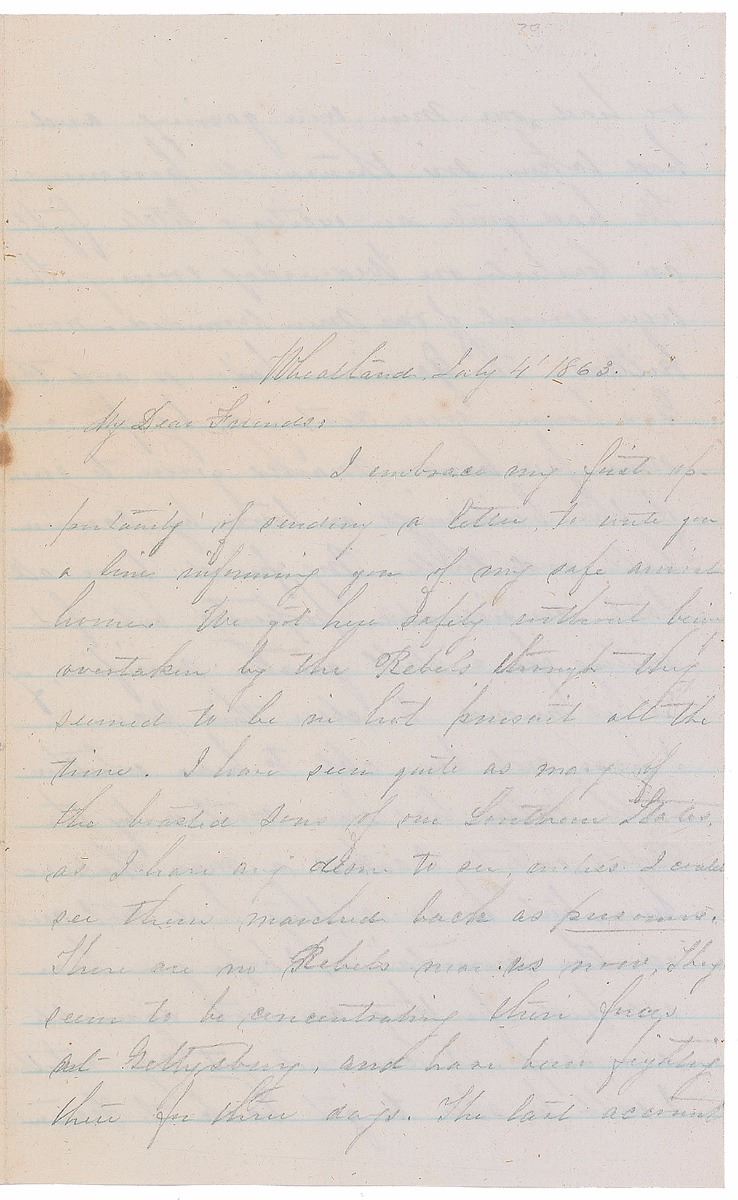 Wheatland, July 4' 1863.
My Dear Friends,
I embrace my first op-
portunity of sending a letter, to write you
a line informing you of my safe arrival
home. We got here safely without being
overtaken by the Rebels though they
seemed to be in hot pursuit all the
time. I have seen quite as many of
the boasted sons of our Southern States,
as I have any desire to see, unless I could
see them marched back as prisoners.
There are no Rebels near us now, they
seem to be concentrating their forces
at Gettysburg, and have been fighting
there for three days. The last account